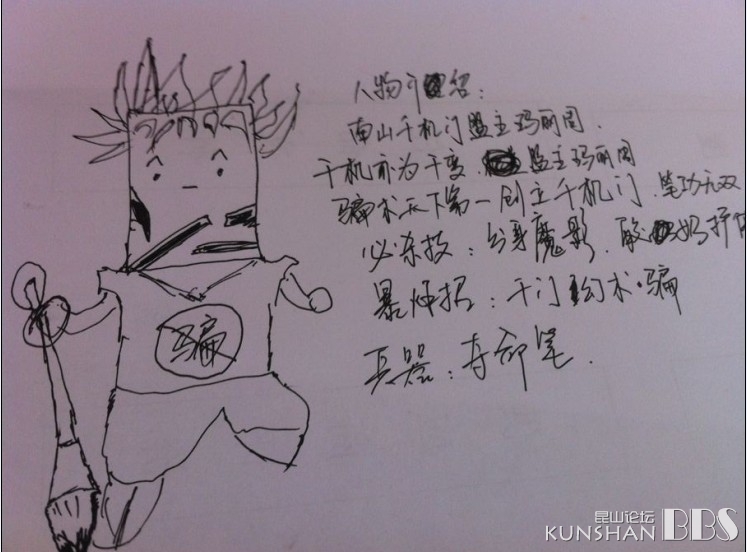 人物介绍：
南山千机门盟主玛丽周.
千机亦为千变.盟主玛丽周
骗术天下第一创立千机门.笔功无双
必杀技：分身魔影.酸奶护体
暴炸招：千门幻术·骗
兵器：夺命笔.
骗
昆山论坛
KUNSHAN BBS